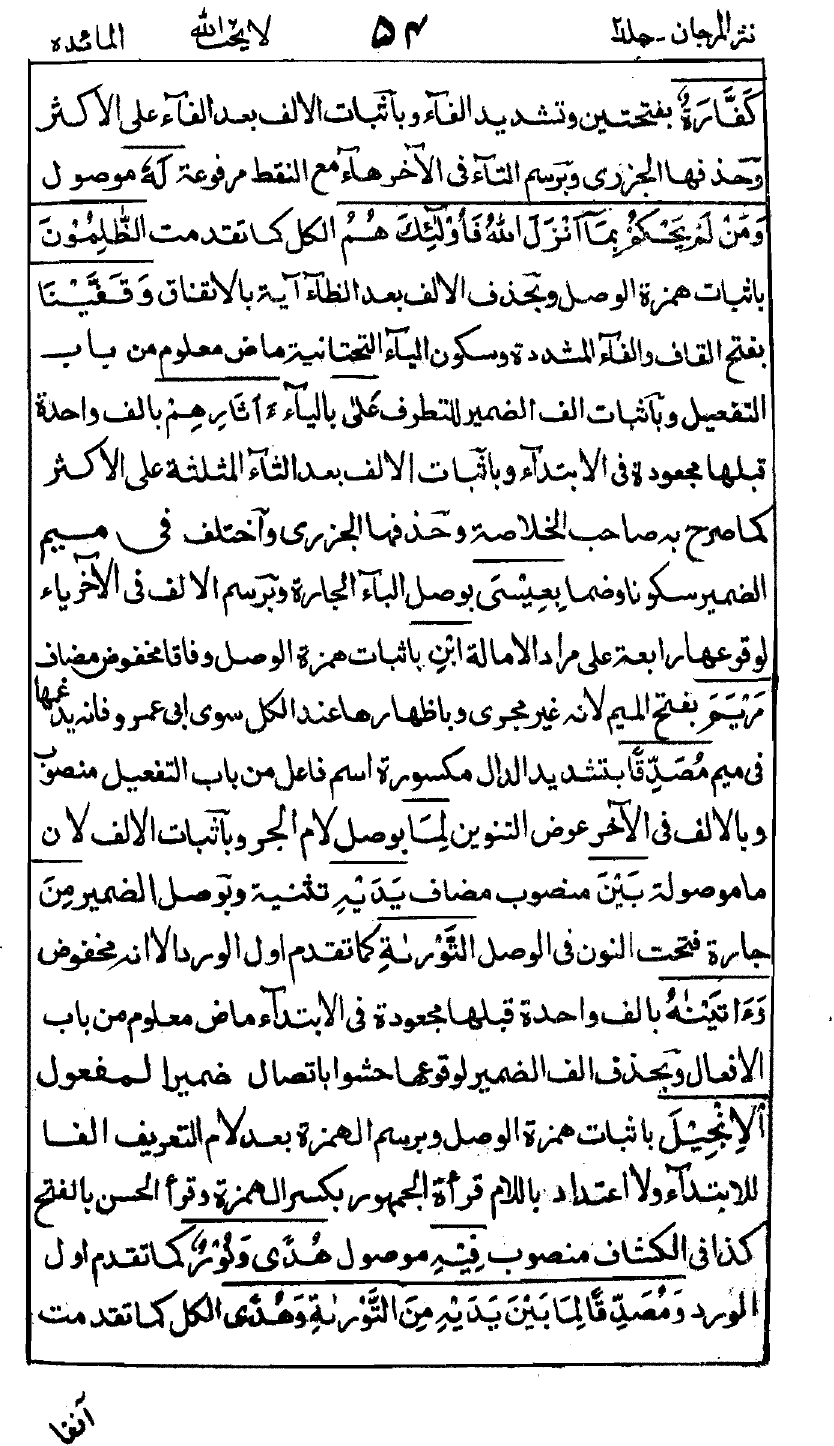 نثر المرجان - جلد ٢ ٥٤ لا يحب الله المائدة
كَفَّارَةٌ بفتحتين وتشديد الفآء وبآثبات الالف بعد الفآء على الاكثر
وحذفها الجزرى وبرسم التآء فى الآخر هآء مع النقط مرفوعة لَهٗ موصول
وَمَنْ لَّمْ يَحْكُمْ بِمَآ اَنْزَلَ اللّٰهُ فَاُولٰٓئِكَ هُمُ الكل كما تقدمت الظّٰلِمُوْنَ
باثبات همزة الوصل وبحذف الالف بعد الظآء آية بالاتفاق وَقَفَّيْنَا
بفتح القاف والفآء المشددة وسكون اليآء التحتانية ماض معلوم من باب
التفعيل وبآثبات الف الضمير للتطرف عَلٰى باليآء ءَاثَارِهِمْ بالف واحدة
قبلها مجعودة فى الابتدآء وباثبات الالف بعد الثآء المثلثة على الاكثر
كما صرح به صاحب الخلاصة وحذفها الجزرى وآختلف فى ميم
الضمير سكونا وضما بِعِيْسَى بوصل البآء الجارة وبرسم الالف فى الآخر ياء
لوقوعها رابعة على مراد الامالة ابْنِ باثبات همزة الوصل وفاقا مخفوض مضاف
مَرْيَمَ بفتح الميم لانه غير مجرى وباظهارها عند الكل سوى ابى عمرو فانه يدغمها
فى ميم مُصَدِّقًا بتشديد الدال مكسورة اسم فاعل من باب التفعيل منصوب
وبالالف فى الآخر عوض التنوين لِمَا بوصل لام الجر وبآثبات الالف لان
ما موصولة بَيْنَ منصوب مضاف يَدَيْهِ تثنية وبوصل الضمير مِنَ
جارة فتحت النون فى الوصل التَّوْرٰىةِ كما تقدم اول الورد الا انه مخفوض
وَءَاتَيْنٰهُ بالف واحدة قبلها مجعودة فى الابتدآء ماض معلوم من باب
الافعال وبحذف الف الضمير لوقوعها حشوا باتصال ضمير المفعول
اَلْاِنْجِيْلَ باثبات همزة الوصل وبرسم الهمزة بعد لام التعريف الفا
للابتدآء ولا اعتداد باللام قرأة الجمهور بكسر الهمزة وقرأ الحسن بالفتح
كذا فى الكشاف منصوب فِيْهِ موصول هُدًى وَّنُوْرٌ كما تقدم اول
الورد وَمُصَدِّقًا لِّمَا بَيْنَ يَدَيْهِ مِنَ التَّوْرٰىةِ وَهُدًى الكل كما تقدمت
آنفا